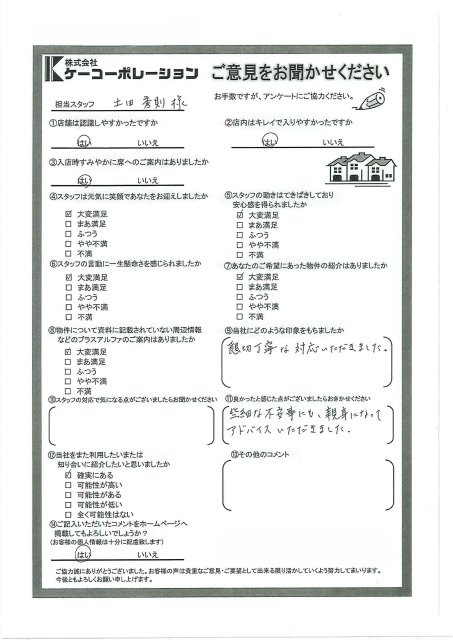 株式会社
ケーコーポレーション
ご意見をお聞かせください
担当スタッフ 土田 秀則 様
お手数ですが、アンケートにご協力ください。
①店舗は認識しやすかったですか
はい いいえ
②店内はキレイで入りやすかったですか
はい いいえ
③入店時すみやかに席へのご案内はありましたか
はい いいえ
④スタッフは元気に笑顔であなたをお迎えしましたか
☑ 大変満足
□ まあ満足
□ ふつう
□ やや不満
□ 不満
⑤スタッフの動きはてきぱきしており
安心感を得られましたか
☑ 大変満足
□ まあ満足
□ ふつう
□ やや不満
□ 不満
⑥スタッフの言動に一生懸命さを感じられましたか
☑ 大変満足
□ まあ満足
□ ふつう
□ やや不満
□ 不満
⑦あなたのご希望にあった物件の紹介はありましたか
☑ 大変満足
□ まあ満足
□ ふつう
□ やや不満
□ 不満
⑧物件について資料に記載されていない周辺情報
などのプラスアルファのご案内はありましたか
☑ 大変満足
□ まあ満足
□ ふつう
□ やや不満
□ 不満
⑨当社にどのような印象をもちましたか
懇切丁寧な対応いただきました。
⑩スタッフの対応で気になる点がございましたらお聞かせください
⑪良かったと感じた点がございましたらおきかせください
些細な不安事にも、親身になって
アドバイスいただきました。
⑫当社をまた利用したいまたは
知り合いに紹介したいと思いましたか
☑ 確実にある
□ 可能性が高い
□ 可能性がある
□ 可能性が低い
□ 全く可能性はない
⑬その他のコメント
⑭ご記入いただいたコメントをホームページへ
掲載してもよろしいでしょうか?
(お客様の個人情報は十分に配慮致します)
はい いいえ
ご協力誠にありがとうございました。お客様の声は貴重なご意見・ご要望として出来る限り活かしていくよう努力してまいります。
今後ともよろしくお願い申し上げます。